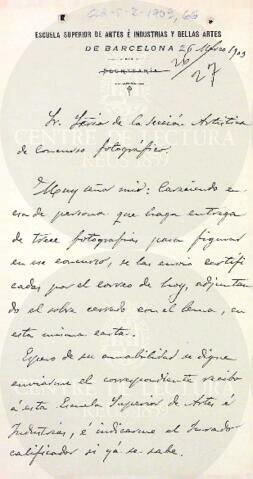 CLA-5-2-1903, 66
ESCUELA SUPERIOR DE ARTES É INDUSTRIAS Y BELLAS ARTES
DE BARCELONA 26 Marzo 1903
SECRETARÍA
26/27
Sr. Srio de la Sección Artística
de Concurso fotográfico.
Muy Señor mío: Careciendo en
esa de persona que haga entrega
de trece fotografías para figurar
en ese concurso, se las envío certifi
cadas por el correo de hoy, adjuntan
do el sobre cerrado con el lema, en
esta misma carta.
Espero de su amabilidad se digne
enviarme el correspondiente recibo
á esta Escuela Superior de Artes é
Industrias, é indicarme el Jurado
calificador si ya se sabe.
CENTRE DE LECTURA
REUS 1859